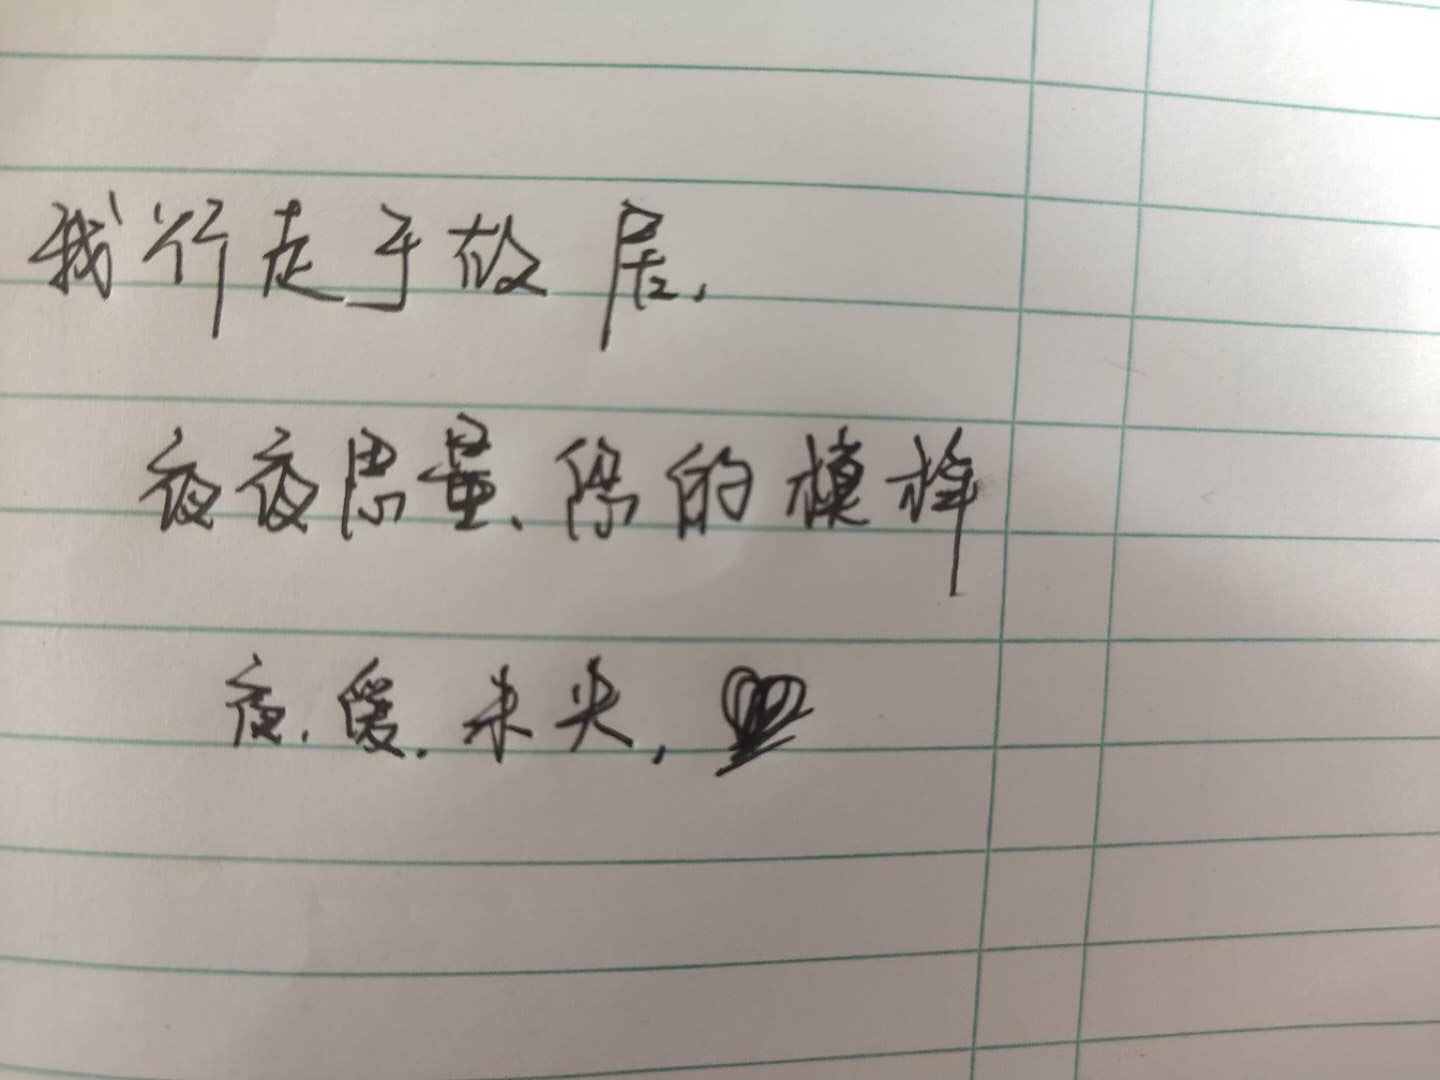 我行走于故居,
夜夜思量、你的模样
夜.缓.未央,